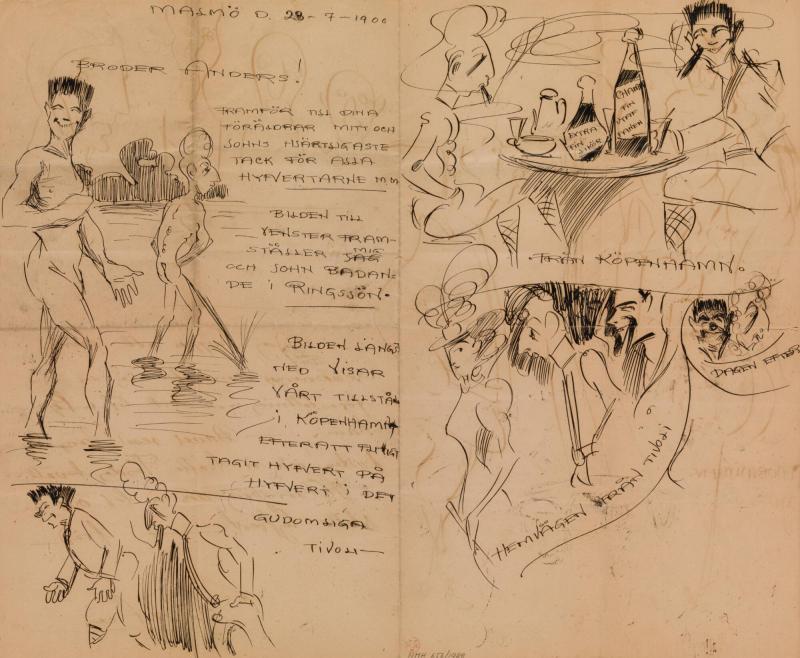 MALMÖ D. 28-7-1900
BRODER ANDERS!
FRAMFÖR TILL DINA
FÖRÄLDRAR MITT OCH
JOHNS HJÄRTLIGASTE
TACK FÖR ALLA
HYFVERTARNE M.M
BILDEN TILL
VENSTER FRAM-
STÄLLER JAG MIG
OCH JOHN BADAN-
DE I RINGSJÖN.
BILDEN LÄNGS
NED VISAR
VÅRT TILLSTÅ
I KÖPENHAMN
EFTERATT FLITIGT
TAGIT HYFVERT PÅ
HYFVERT I DET
GUDOMLIGA
TIVOLI—
EXTRA
FIN
CHAM
FIN
FRÅN KÖPENHAMN.
DAGEN EFTER
HEMVÄGEN FRÅN TIVOLI
AMH